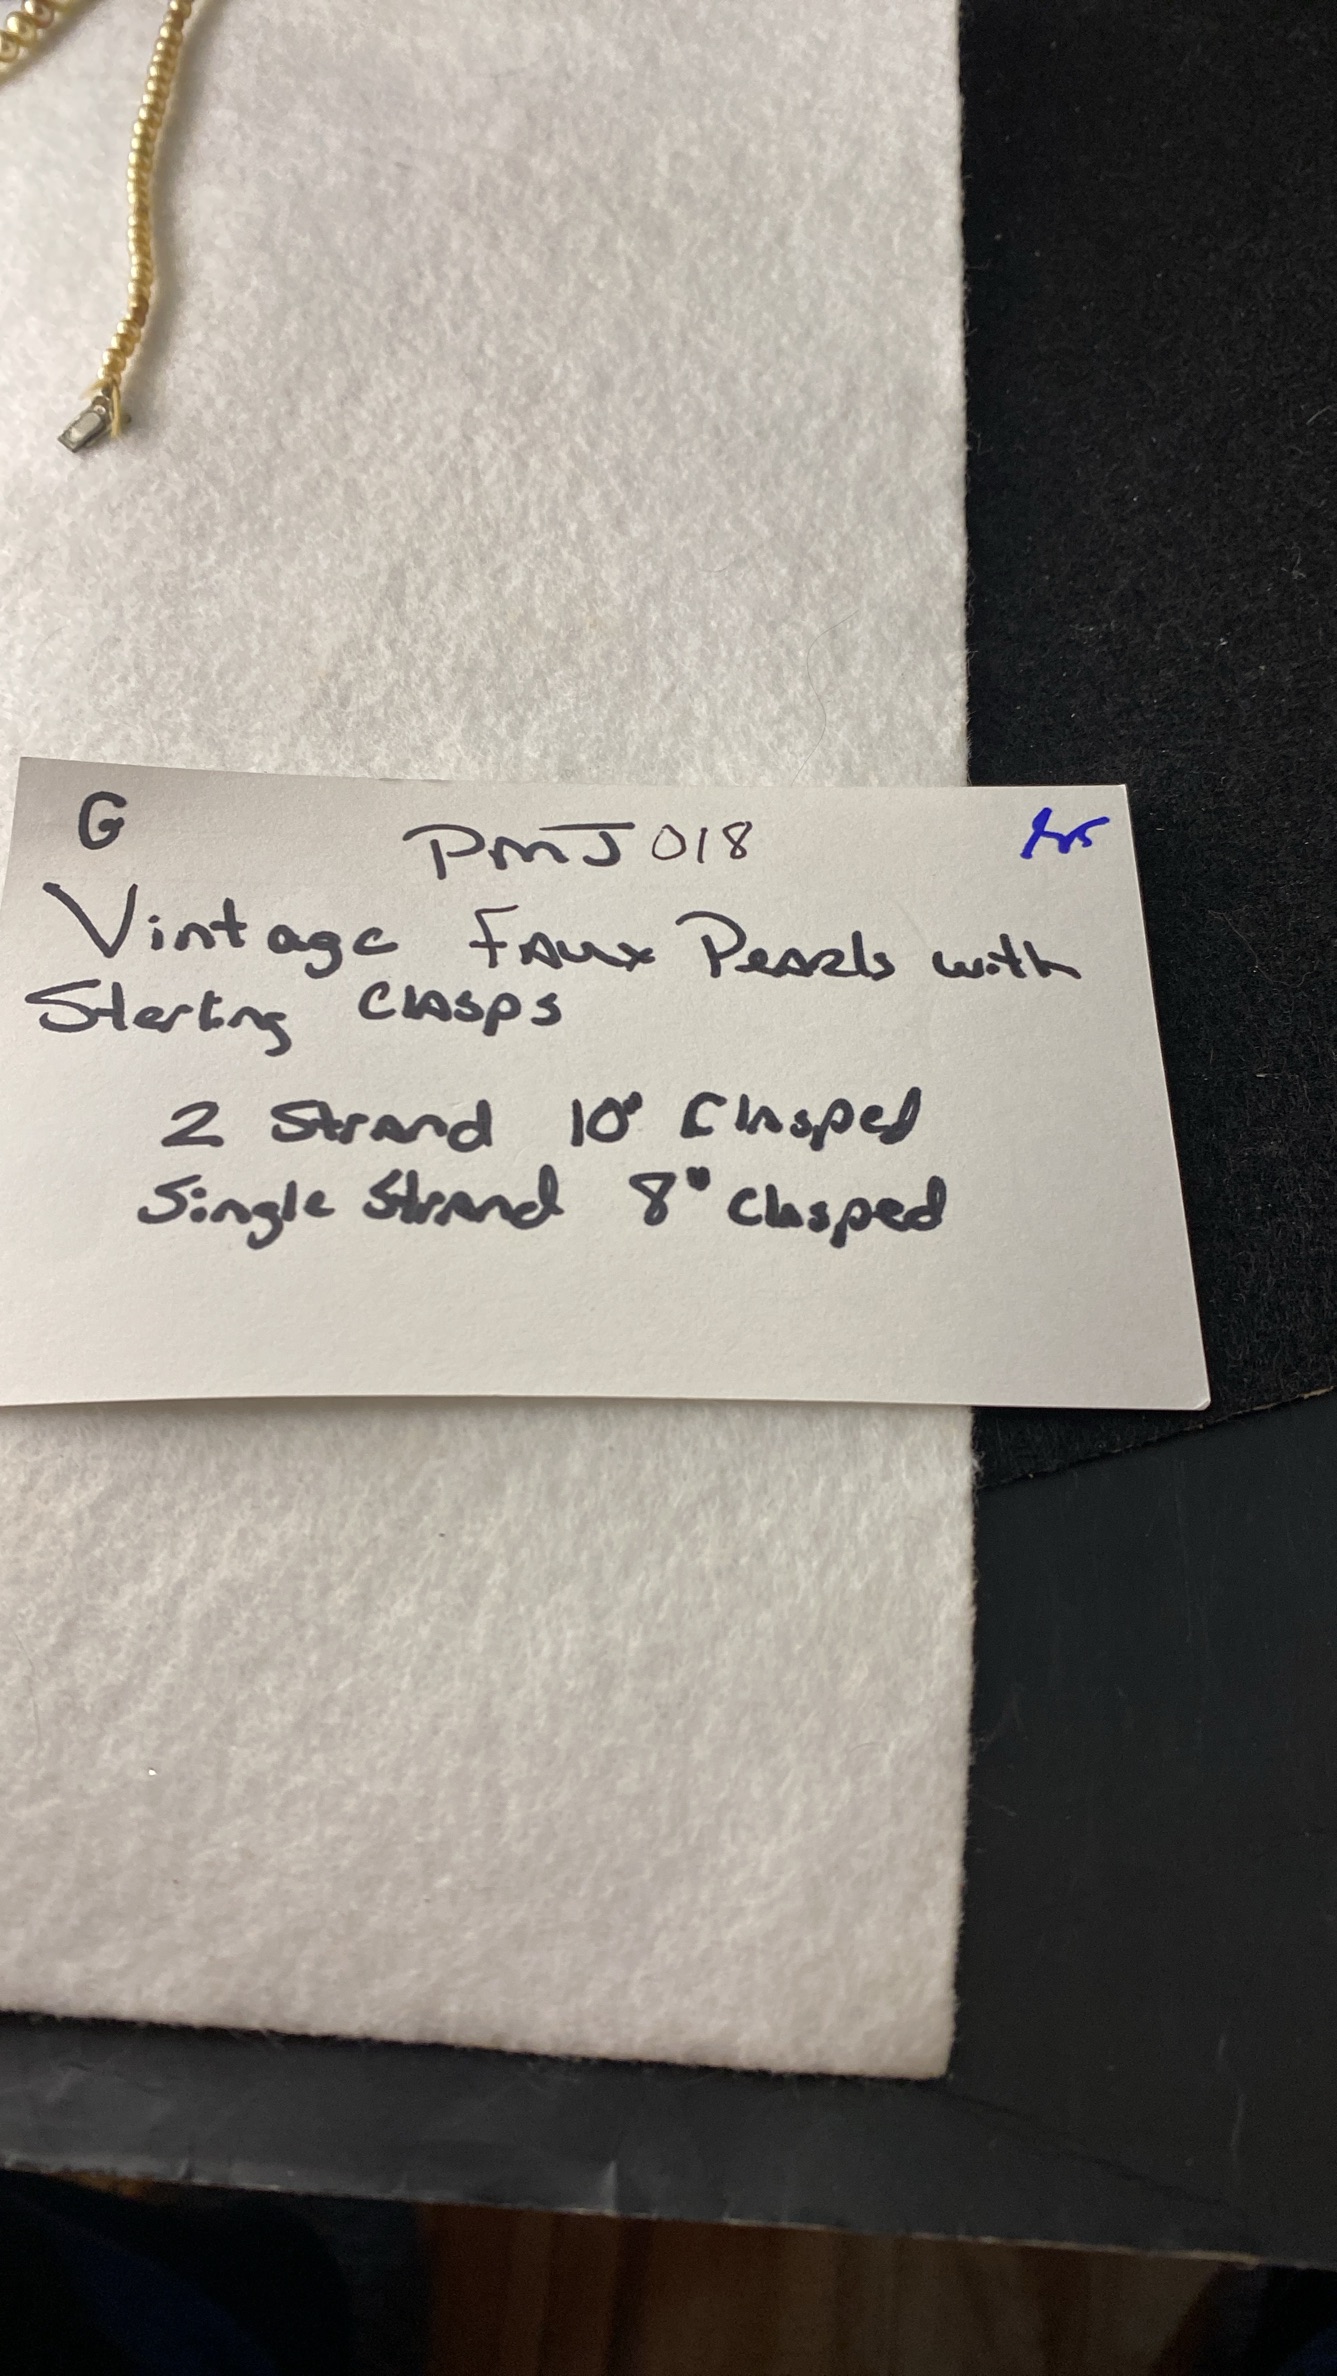 G PMJ 018
Vintage Faux Pearls with
Sterling Clasps
2 Strand 10" Clasped
Single Strand 8" Clasped